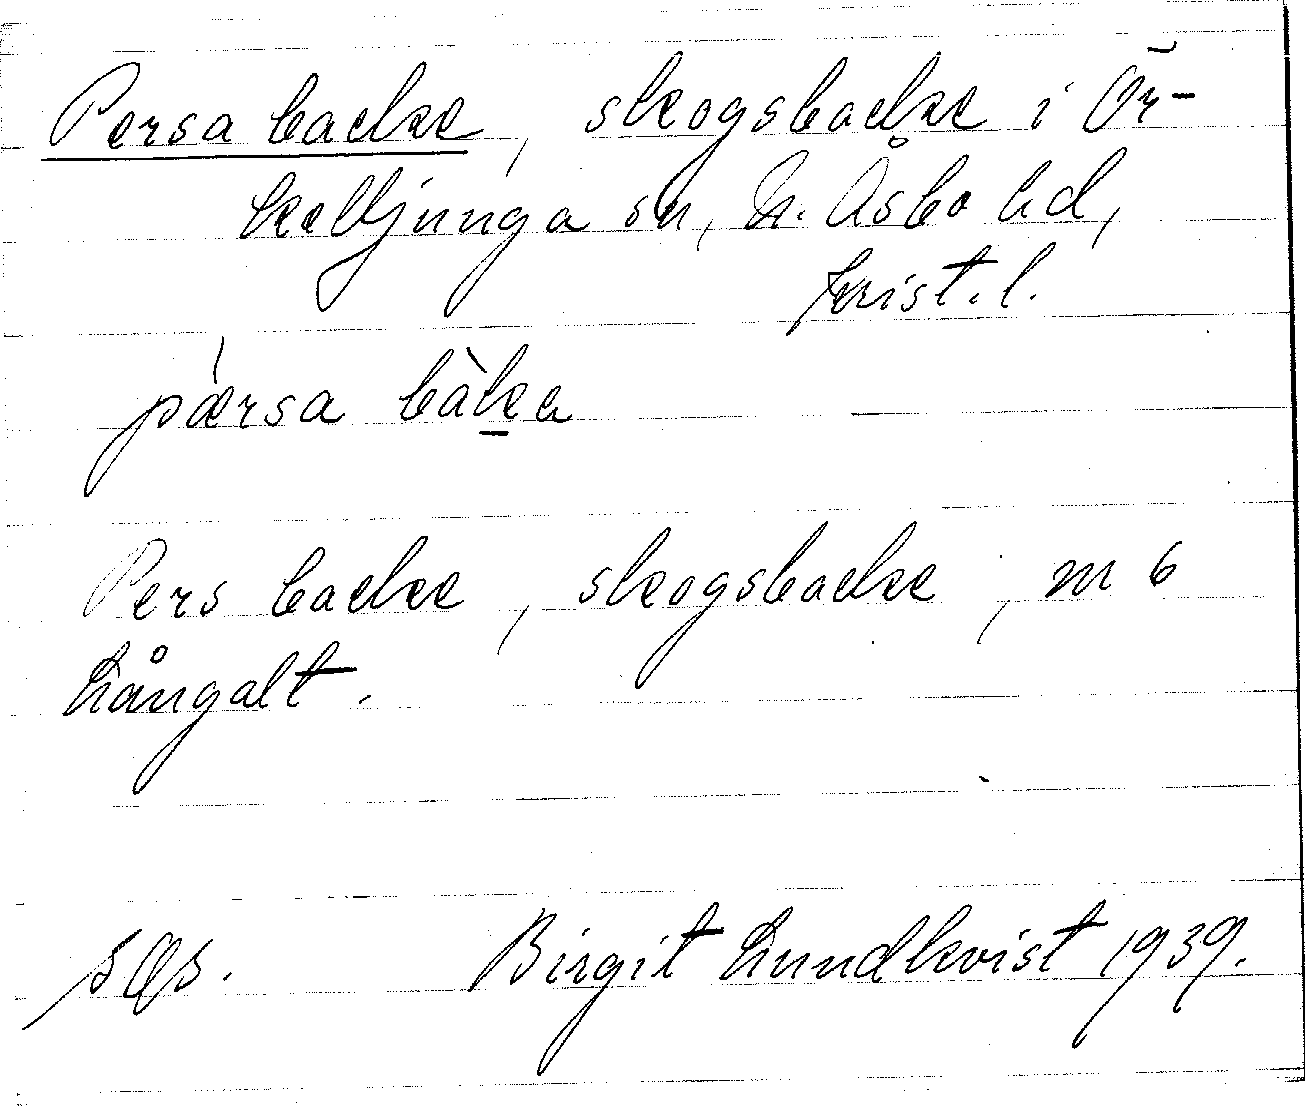 Persa backe, skogsbacke i Ör-
kelljunga sn, N. Åsbo hd,
Krist. l.
pærsa bàka
Pers backe, skogsbacke, m 6
Långalt.
sgs. Birgit Lundkvist 1939.